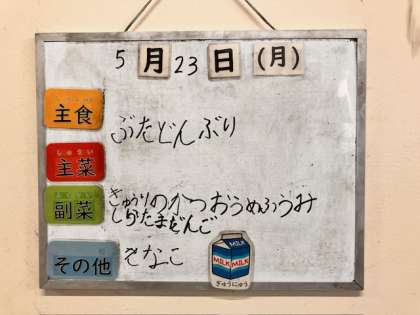 5月23日(月)
主食
ぶたどんぶり
しゅさい
主菜
副菜
きゅうりのかつおうめふうみ
しらたまだんご
その他
きなこ
MILK
MILK MILK
ぎゅうにゅう